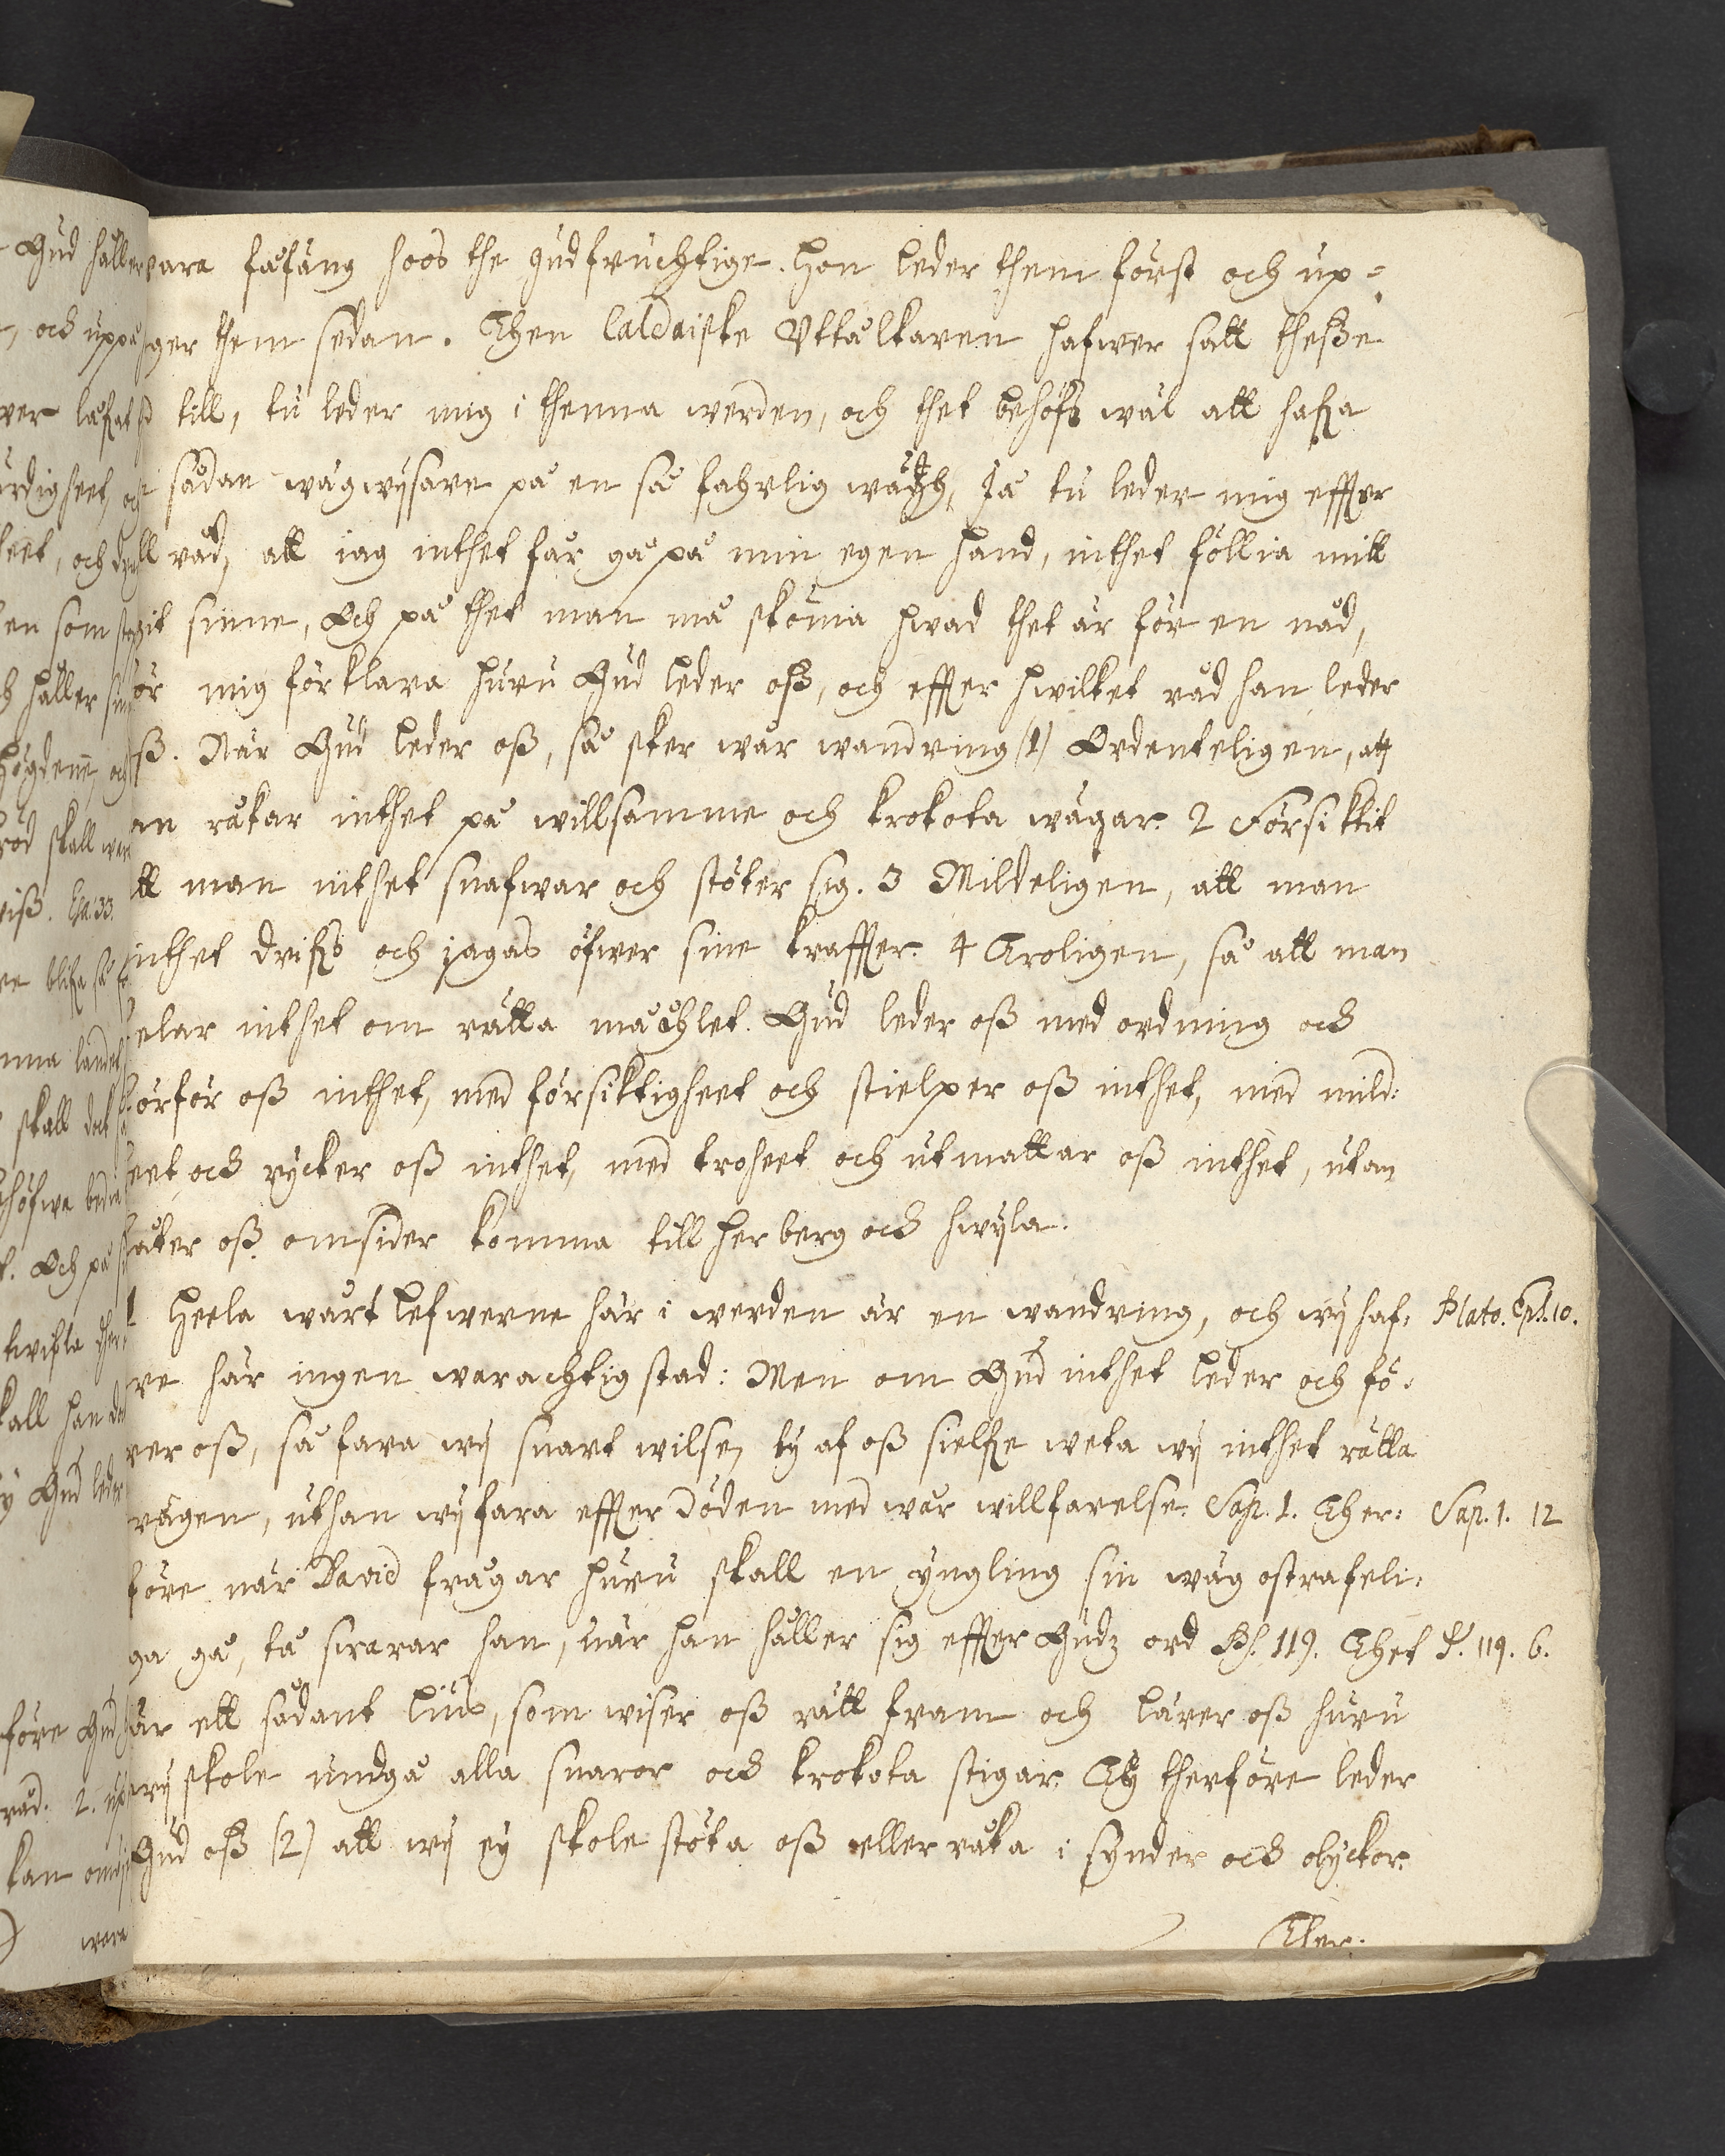 vara fåfäng hoos the gudfruchtige. Hon leder them först och up-
ger them sedan. Then Caldaiske Uttålkaren hafwer satt theße
till, tu leder mig i thenna werden, och thet behöfs wäl att hafa
sådan wägwijsare på en så fahrlig wäg, Ja tu leder mig effter
råd, att iag inthet får gå på min egen hand, inthet föllia mitt
git sinne, Och på thet man må skönia hwad thet är för en nåd,
ör mig förklara huru Gud leder oß, och effter hwilket råd han leder
ß. När Gud leder oß, så sker wår wandring (1) Ordenteligen, att
an råkar inthet på willsamme och krokota wägar. 2 Försiktit
tt man inthet snafwar och stöter sig. 3 Mildeligen, att man
inthet drifs och jagas öfwer sine kraffter. 4 Troligen, så att man
elar inthet om rätta måhlet. Gud leder oß med ordning och
örför oß inthet, med försiktigheet och stielper oß inthet, med mild:
eet, och rycker oß inthet, med troheet och utmattar oß inthet, utan
låter oß omsider komma till herberg och hwijla.
1 Heela wårt lefwerne här i werden är en wandring, och wij haf: Plato. Epl. 10.
ve här ingen warachtig stad: Men om Gud inthet leder och fö:
rer oß, så fara wij snart wilse, ty af oß sielfe weta wij inthet rätta
wägen, uthan wij fara effter döden med wår willfarelse. Sap. 1. Ther: Sap. 1. 12
före när David frågar huru skall en yngling sin wäg ostrafeli:
ga gå, tå swarar han, när han håller sig effter Gudz ord Ps. 119. Thet P. 119. 6.
är ett sådant lius, som wiser oß rätt fram och lärer oß huru
wij skole undgå alla snaror och krokota stigar. Ty therföre leder
Gud oß (2) att wij ey skole stöta oß eller råka i synder och olyckor.
Ther: